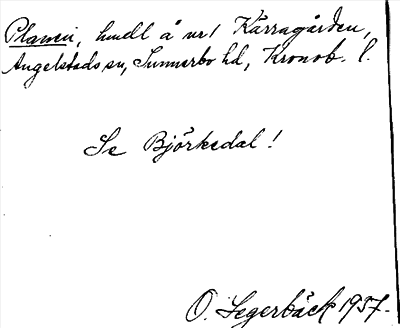 Planen, hmdl å nr 1 Kärragården,
Angelstads sn, Sunnerbo hd, Kronob. l.
Se Björkedal!
O. Segerbäck 1937.